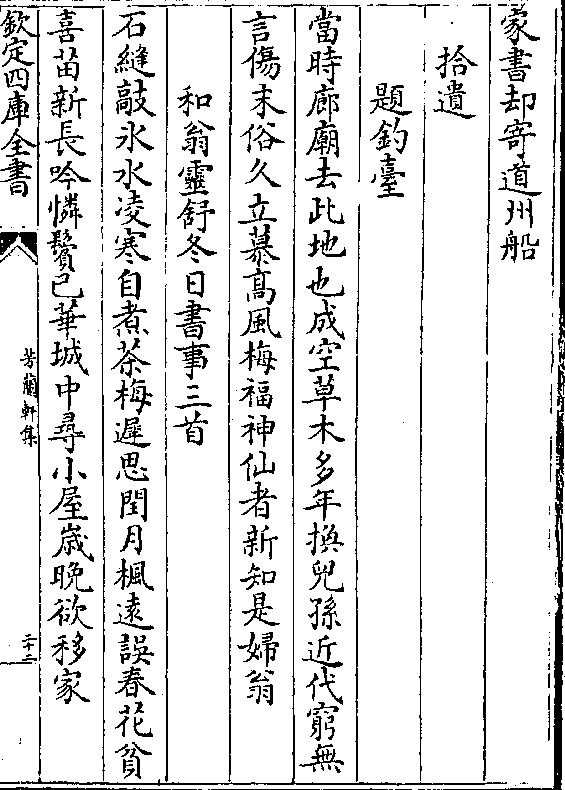 蒙書却寄道州船
拾遺
題釣臺
當時廊廟去此地也成空草木多年換兒孫近代窮無
言傷末俗久立慕髙風梅福神仙者新知是婦翁
和翁靈舒冬日書事三首
石縫敲氷水凌寒自煮茶梅遲思閏月楓遠誤春花貧
喜苗新長吟憐鬢已華城中尋小屋歳晩欲移家
欽定四庫全書
芳蘭軒集
二十二